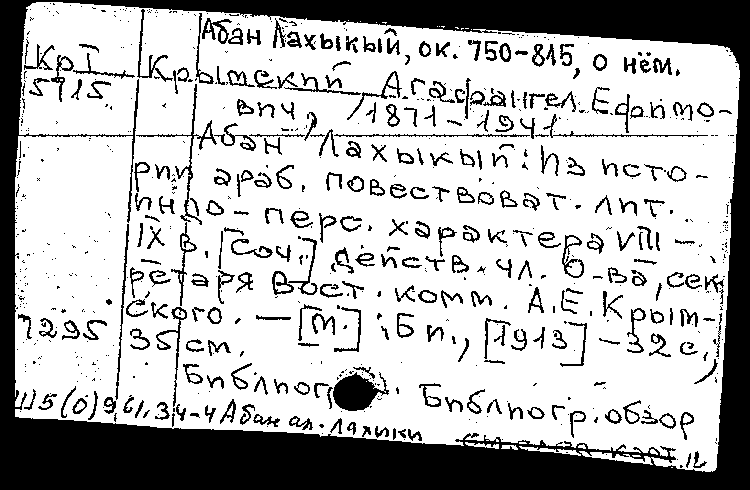 Абан Лахыкый, ок. 750-815, о нём.
КрI Крымский Агафангел Ефимо-
5715. вич, 1871-1941.
Абан Лахыкый: Из исто-
рии араб. повествоват. лит.
индо-перс. характера VIII-
IX в. [Соч.] действ. чл. О-ва, сек
ретаря Вост. комм. А.Е. Крым-
ского. — [М.] : Б и., [1913] - 32 с.;
7295 35 см.
Библиог . Библиогр. обзор
Ш5(0)961.34-4 Абан ал-Лахики